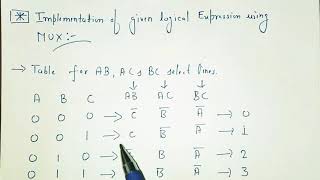 * Implementation of given logical Expression using
MUX:-
→ Table for AB, AC & BC select lines.
A B C AB AC BC
0 0 0 → C̅ B̅ A̅ → 0
0 0 1 → C B̅ A̅ → 1
0 1 0 → B A̅ → 2
0 1 1 → B A̅ → 3